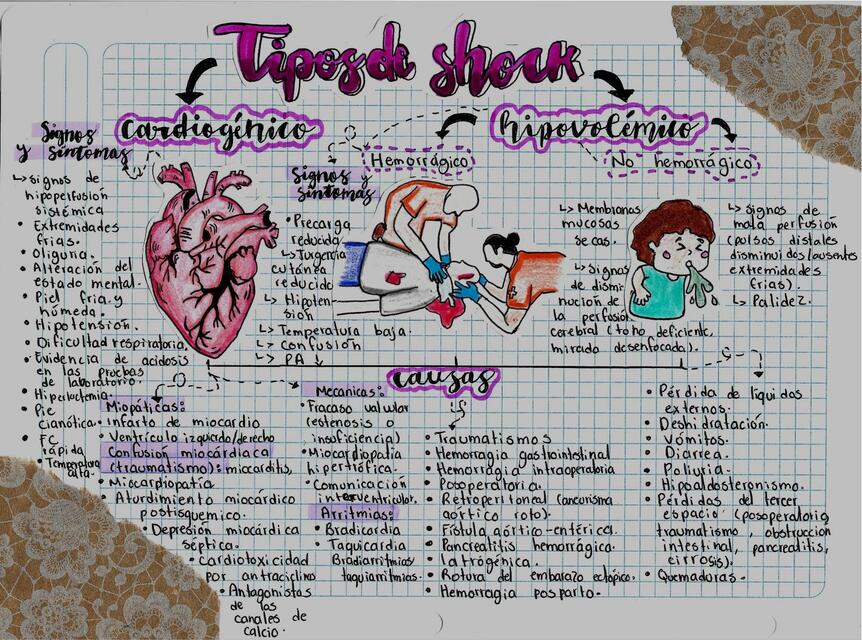 Tipos de shock
cardiogénico
Signos
y síntomas
↳ signos de
hipoperfusión
sistémica
• Extremidades
frías.
• Oliguria.
• Alteración del
estado mental.
• Piel fría y
húmeda.
• Hipotensión.
• Dificultad respiratoria.
• Evidencia de acidosis
en las pruebas
de laboratorio.
• Hiperlactemia.
• Pie
cianótica.
• FC
rápida
• Temperatura
alta.
hipovolémico
Hemorrágico
Signos y
síntomas
• Precarga
reducida
↳ Turgencia
cutánea
reducida
↳ Hipoten
sión
↳ Temperatura baja.
↳ confusión
↳ PA ↓
No hemorrágico
↳ Membranas
mucosas
secas.
↳ Signos
de dismi
nución de
la perfusión
cerebral (tono deficiente,
mirada desenfocada).
↳ signos de
mala perfusión
(pulsos distales
disminuidos/ausentes
extremidades
frías).
↳ Palidez.
causas
Miopáticas:
• Infarto de miocardio
• Ventrículo izquierdo/derecho
Confusión miocárdiaca
(traumatismo): miocarditis,
• Miocardiopatía
• Aturdimiento miocárdico
postisquemico.
• Depresión miocárdica
séptica.
• Cardiotoxicidad
por antraciclina
• Antagonistas
de los
canales de
calcio.
Mecanicas:
• Fracaso valvular
(estenosis o
insuficiencia)
• Miocardiopatia
hipertrófica.
• Comunicación
interventricular.
Arritmias:
• Bradicardia
• Taquicardia
Bradiarritmias/
taquiarritmias.
• Traumatismos
• Hemorragia gastrointestinal
• Hemorragia intraoperatoria
• Posoperatoria.
• Retroperitoneal (aneurisma
aórtico roto).
• Fístula aórtico-entérica.
• Pancreatitis hemorrágica.
• Iatrogénica.
• Rotura del embarazo ectópico.
• Hemorragia posparto.
• Pérdida de liquidos
externos.
• Deshidratación.
• Vómitos.
• Diarrea.
• Poliuria.
• Hipoaldosteronismo.
• Pérdidas del tercer
espacio (posoperatorio,
traumatismo, obstrucción
intestinal, pancreatitis,
cirrosis).
• Quemaduras.